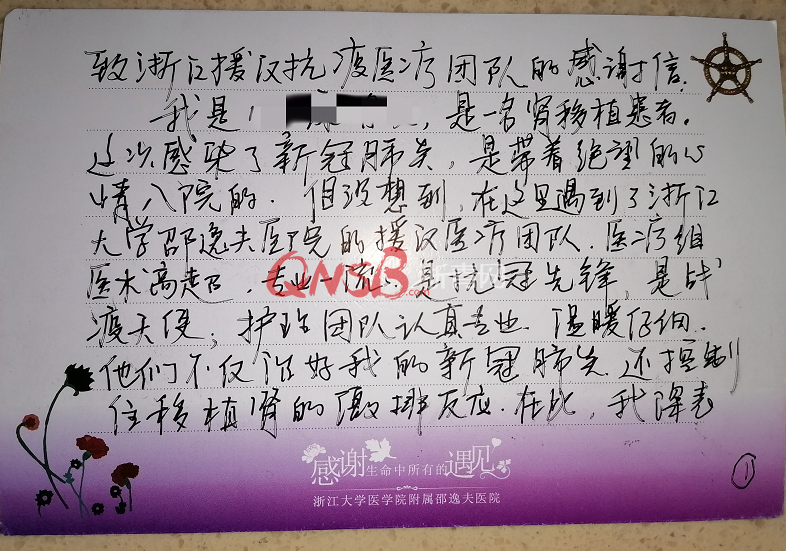 致浙江援汉抗疫医疗团队的感谢信
我是 是一名肾移植患者.
这次感染了新冠肺炎,是带着绝望的心
情入院的.但没想到,在这里遇到了浙江
大学邵逸夫医院的援汉医疗团队.医疗组
医术高超,专业一流,是抗冠先锋,是战
疫天使,护理团队认真专业.温暖仔细.
他们不仅治好我的新冠肺炎.还控制
住移植肾的激排反应.在此,我深表
QNSB
.com
感谢生命中所有的遇见
浙江大学医学院附属邵逸夫医院
1